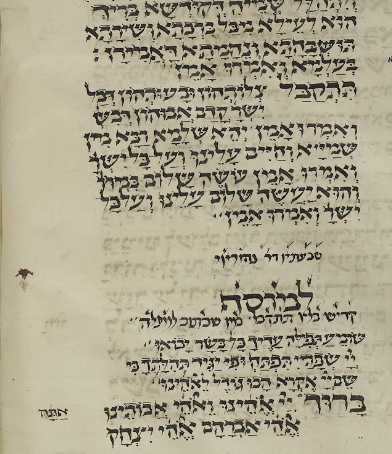 שמיה דקודשא בריך
הוא לעילא מכל ברכתא ושירתא
תושבחתא ונחמתא דאמירן
בעלמא ואמרו אמן
תתקבל צלותהון ובעותהון דכל
ישר קדם אבוהון דבש
ואמרו אמן יהא שלמא רבא מן
שמייא וחיים עלינו ועל כל ישר
ואמרו אמן עושה שלום במרו
והוא יעשה שלום עלינו ועל כל
ישר ואמרו אמן
למוסף
קדיש
שומע תפילה עדיך כל בשר יבואו
יי שפתי תפתח ופי יגיד תהלתך כי
שם יי אקרא הבו גודל לאלהינו
ברוך יי אלהינו ואלהי אבותינו
אתה
אלהי אברהם אלהי יצחק